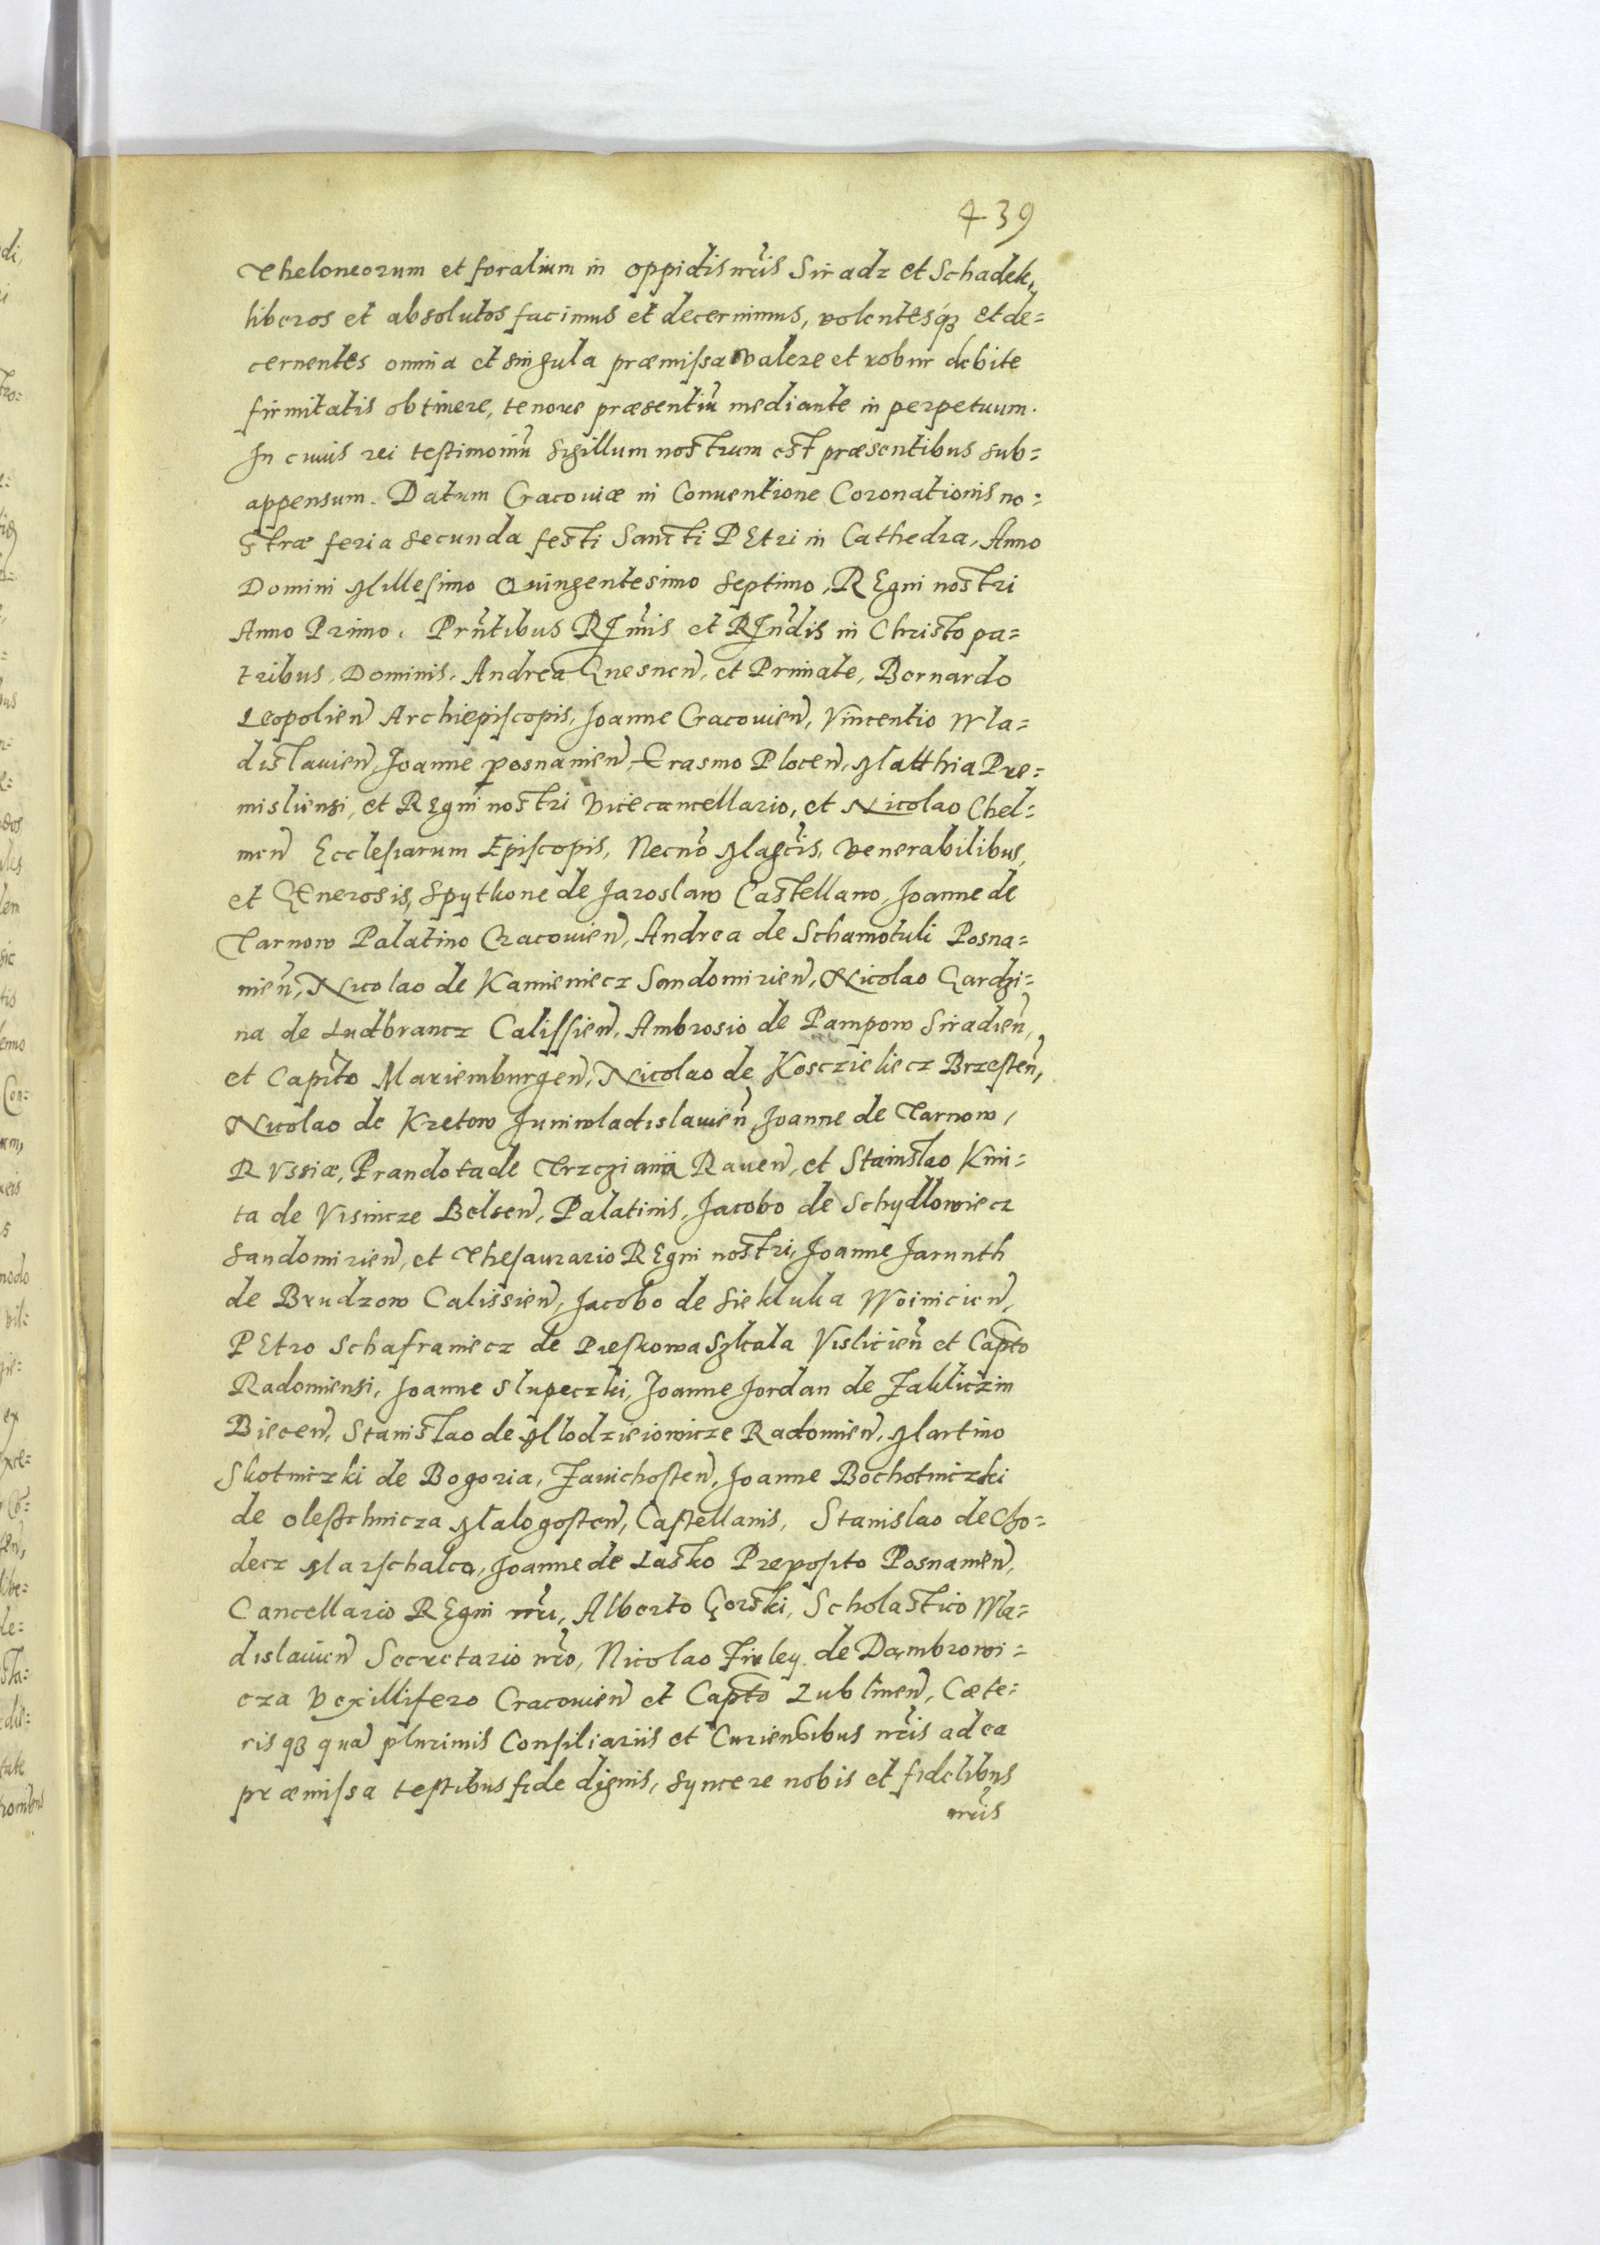 439
Theloneorum et foralium in oppidis nr̃is Siradz et Schadek,
liberos et absolutos facimus et decernimus, volentesq́ȝ et de=
cernentes omnia et singula præmissa valere et robur debite
firmitatis obtinere, tenore præsentiũ mediante in perpetuum.
In cuius rei testimoniũ Sigillum nostrum est præsentibus sub=
appensum. Datum Cracoviæ in Conventione Coronationis no=
stræ feria secunda festi Sancti PEtri in Cathedra, Anno
Domini Millesimo Quingentesimo Septimo, REgni nostri
Anno Primo. Prñtibus RJm̃is et RJnd̃is in Christo pa=
tribus, Dominis, Andrea Gnesnen̄, et Primate, Bernardo
Leopolien̄ Archiepiscopis, Joanne Cracovien̄, Vincentio Wla=
dislauien̄, Joanne posnanien̄, Erasmo Plocen̄, Matthia Pre=
misliensi, et REgni nostri Vicecancellario, et Nicolao Chel=
men̄ Ecclesiarum Episcopis, Necnõ Magc̃is, Venerabilibus,
et GEnerosis, Spytkone de Jaroslaw Castellano, Joanne de
Tarnow Palatino Cracovien̄, Andrea de Schamotuli Posna=
nien̄, Nicolao de Kamieniecz Sandomirien̄, Nicolao Gardzi=
na de Ludbrancz Calissien̄, Ambrosio de Pampow Siradien̄,
et Capit̃o Mariemburgen̄, Nicolao de Kosczieliecz Brzesten̄,
Nicolao de Kretow Juniwladislauien̄, Joanne de Tarnow,
RUssiæ, Prandota de Trzcziana Raven̄, et Stanislao Kmi=
ta de Visnicze Belsen̄, Palatinis, Jacobo de Schydlowiecz
Sandomirien̄, et Thesaurario REgni nostri, Joanne Jarunth
de Brudzow Calissien̄, Jacobo de Siekluka Woinicien̄,
PEtro Schafraniecz de Pieskowa Szkala Vislicien̄ et Capt̃o
Radomiensi, Joanne Slupeczki, Joanne Jordan de Zakliczin
Biecen̄, Stanislao de Mlodzieiowicze Radomien̄, Martino
Skotniczki de Bogoria, Zavichosten̄, Joanne Bochotniczki
de Oleschnicza Malogosten̄, Castellanis, Stanislao de Cho=
decz Marschalco, Joanne de Lasko Preposito Posnanien̄,
Cancellario REgni nr̃i, Alberto Gorski, Scholastico Wla=
dislauien̄ Secretario nr̃o, Nicolao Firley de Dambrowi=
cza Vexillifero Cracovien̄ et Capt̃o Lublinen̄, Cæte=
risqȝ qua᷉ plurimis Consiliariis et Curiensibus nr̃is ad ea
præmissa testibus fide dignis, Syncere nobis et fidelibus
nr̃is